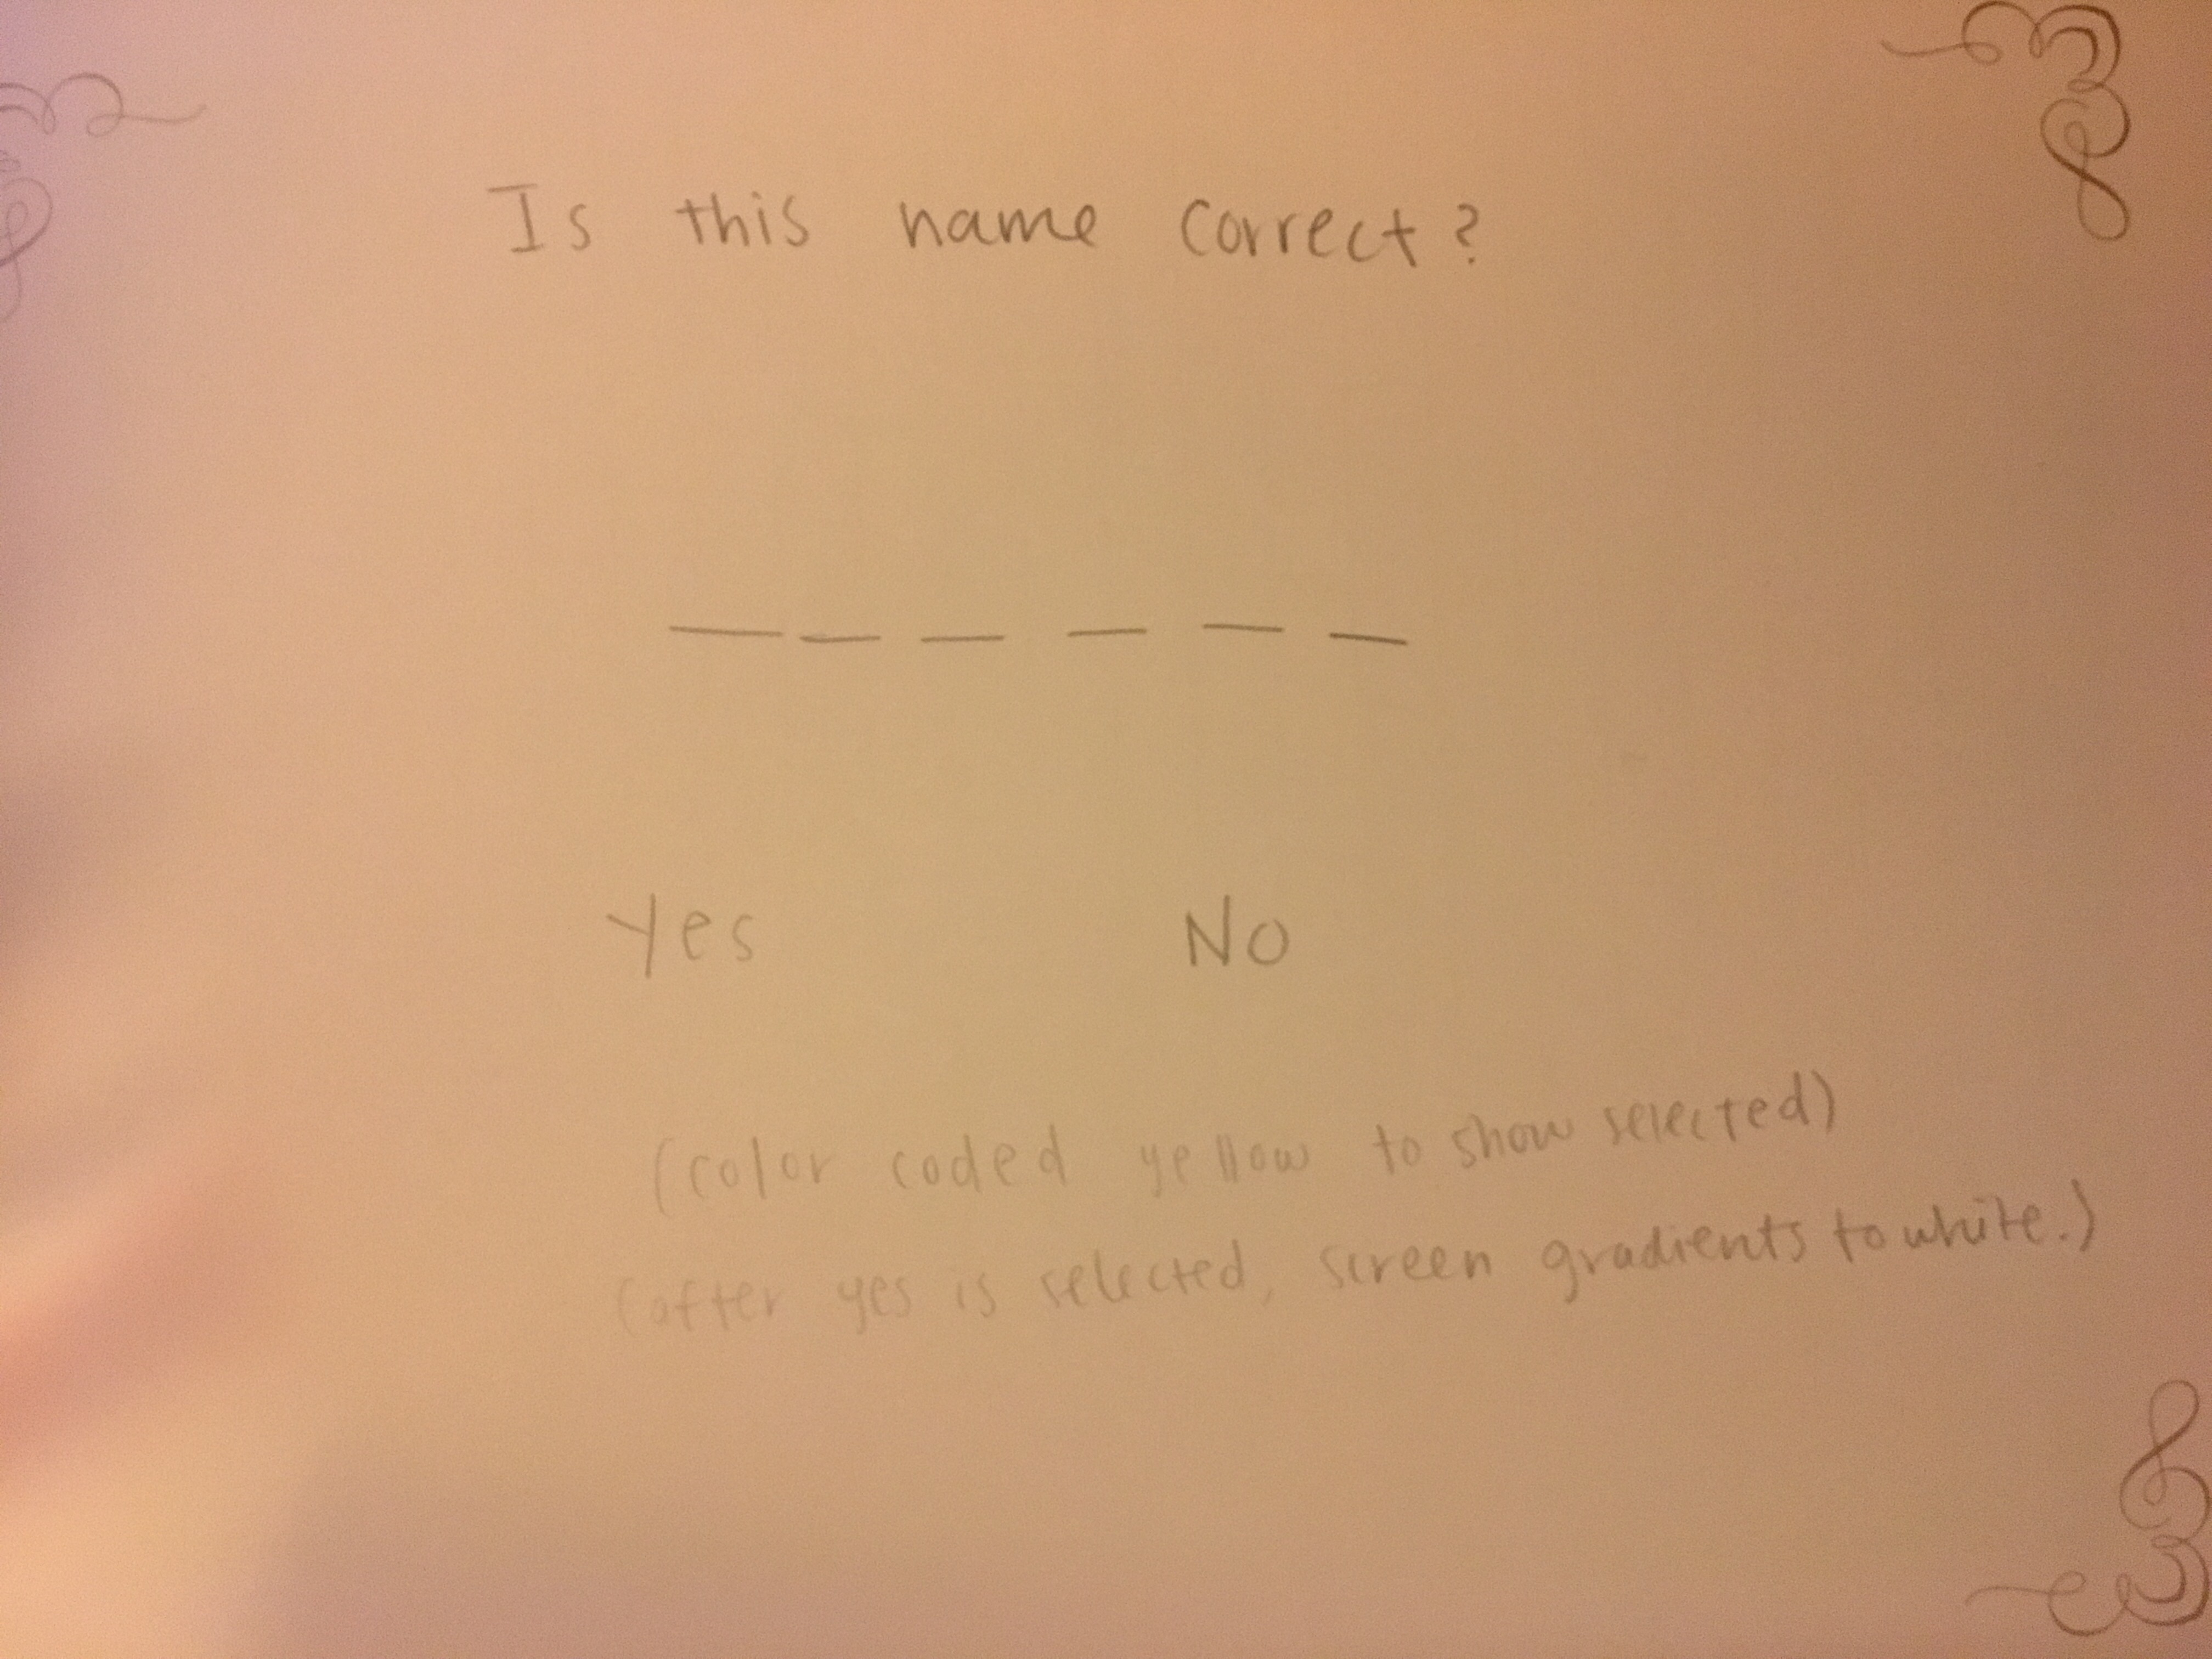 Is this name correct?
_ _ _ _ _ _
Yes No
(color coded yellow to show selected)
(after yes is selected, screen gradients to white.)